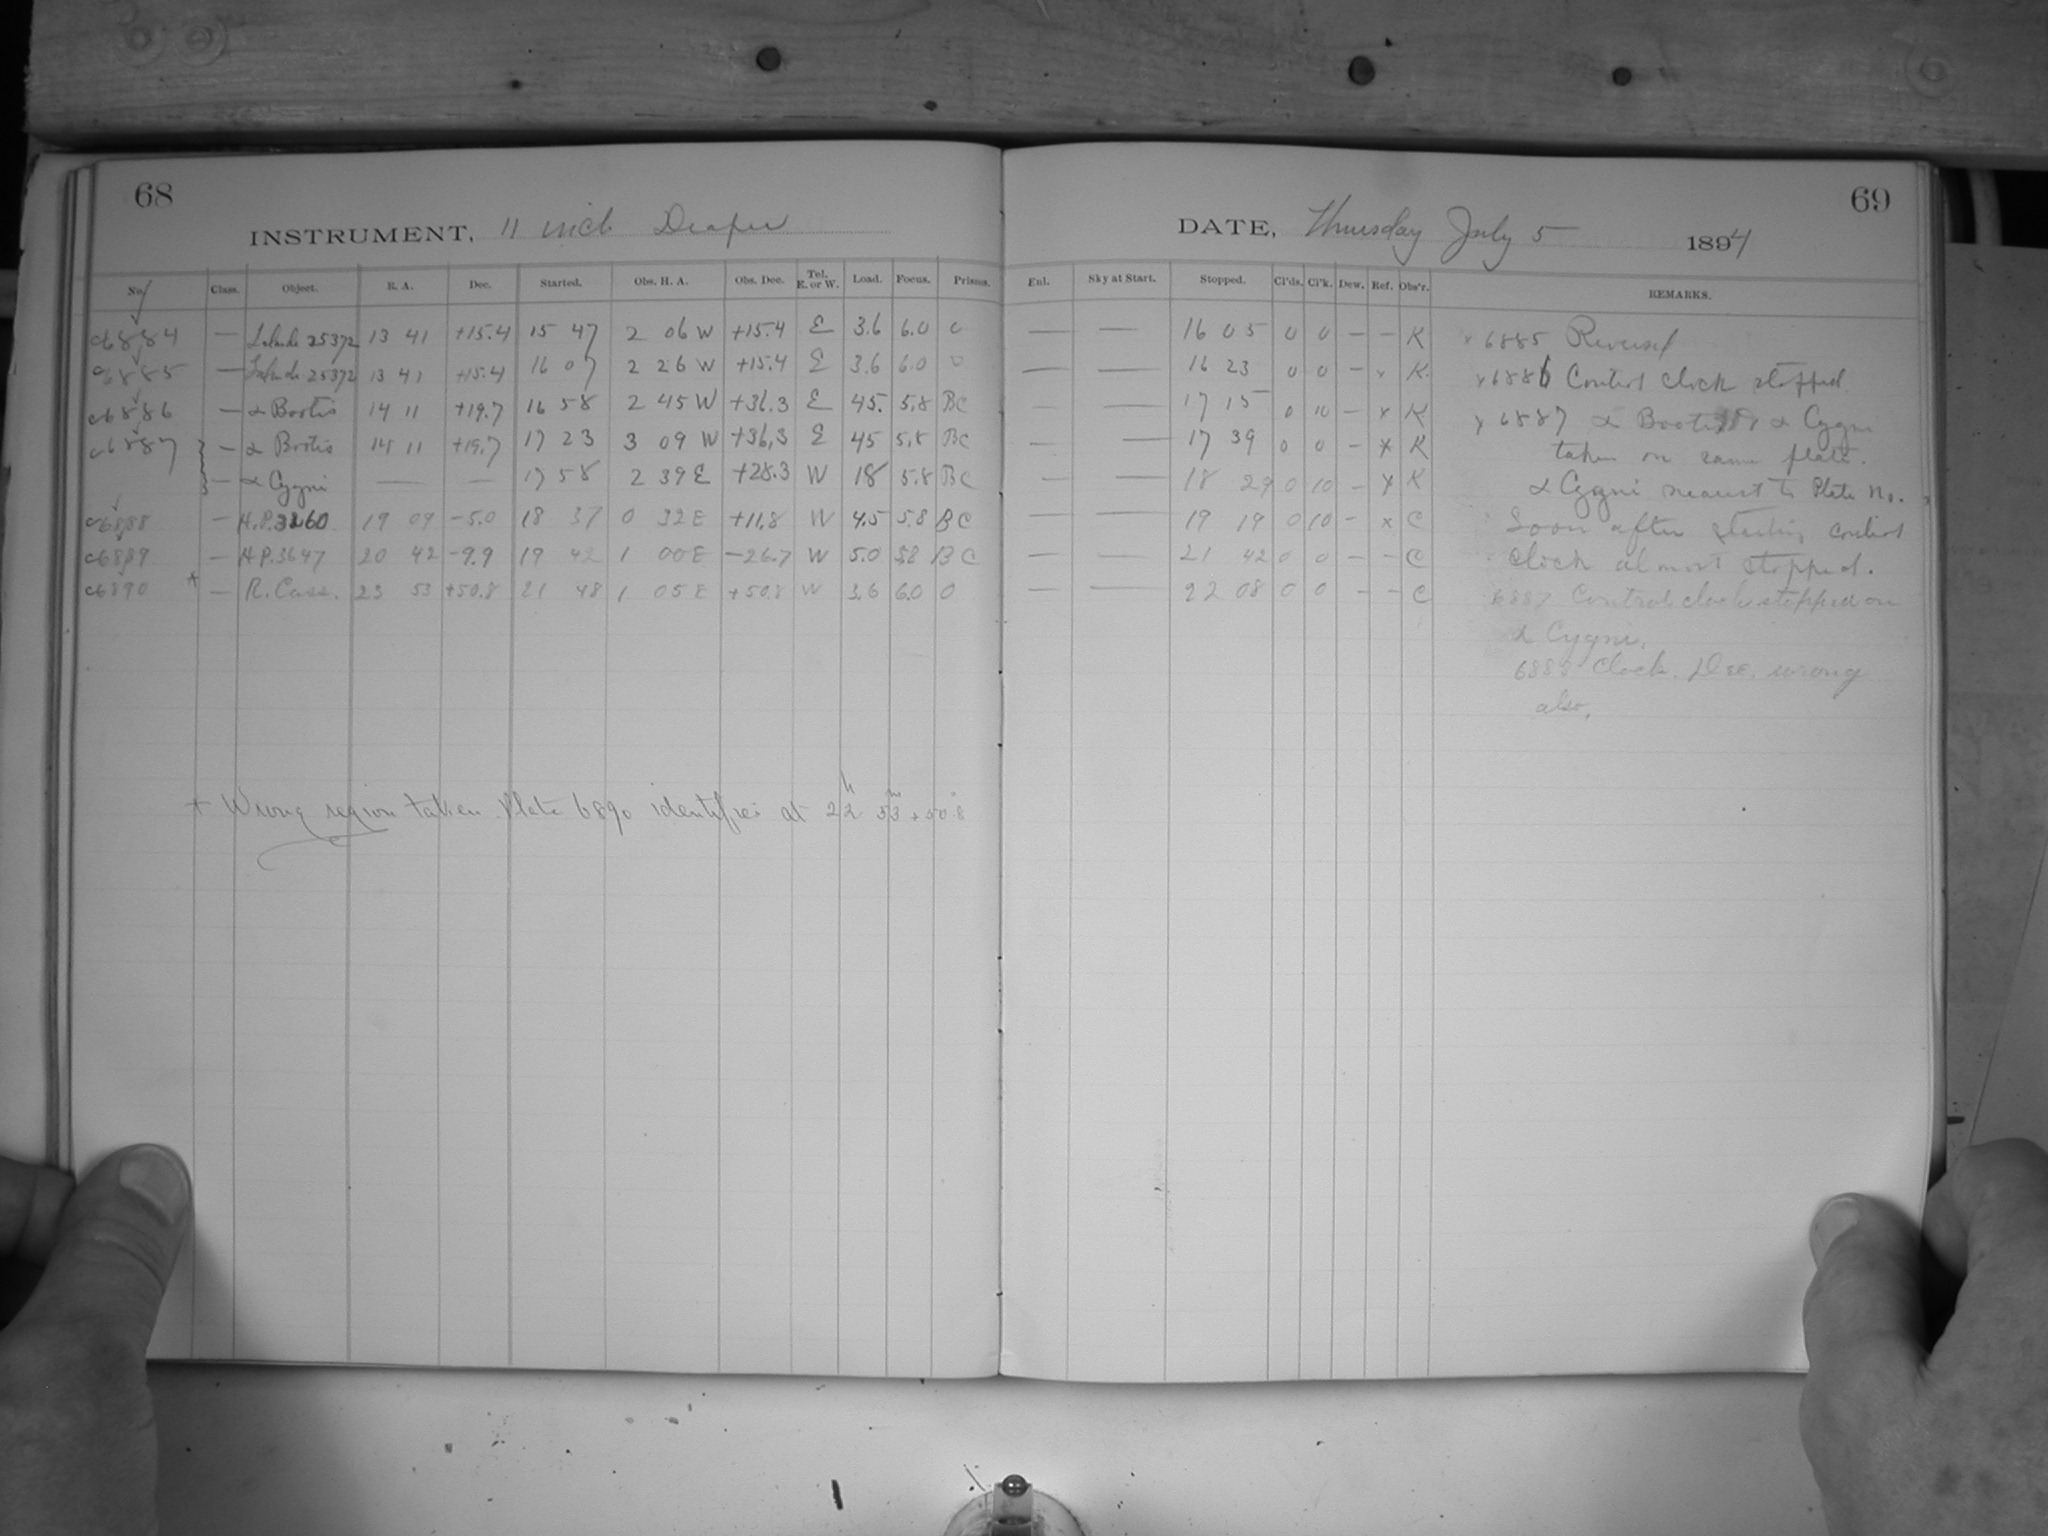 68
INSTRUMENT, 11 inch Draper
No. Class. Object. R. A. Dec. Started. Obs. H. A. Obs. Dec. Tel. E. or W. Load. Focus. Prisms.
c6884 — Lalande 25372 13 41 +15.4 15 47 2 06 W +15.4 E 3.6 6.0 0
c6885 — Lalande 25372 13 41 +15.4 16 07 2 26 W +15.4 E 3.6 6.0 0
c6886 — α Bootis 14 11 +19.7 16 58 2 45 W +36.3 E 45. 5.8 BC
c6887 — α Bootis 14 11 +19.7 17 23 3 09 W +36.3 E 45 5.8 BC
— α Cygni — — 17 58 2 39 E +28.3 W 18 5.8 BC
c6888 — H.P. 3260 19 09 -5.0 18 37 0 32 E +11.8 W 4.5 5.8 BC
c6889 — H.P. 3647 20 42 -9.9 19 42 1 00 E -26.7 W 5.0 5.8 BC
c6890 * — R. Cass. 23 53 +50.8 21 48 1 05 E +50.8 W 3.6 6.0 0
+ Wrong region taken. Plate 6890 identifies at 22h 53m +50°.8
69
DATE, Thursday July 5 1894
Enl. Sky at Start. Stopped. Cl'ds. Cl'k. Dew. Ref. Obs'r. REMARKS.
— — 16 05 0 0 — — K x 6885 Reversed
— — 16 23 0 0 — x K x 6886 Control clock stopped.
— — 17 15 0 10 — x K x 6887 α Bootis α Cygni
— — 17 39 0 0 — x K taken on same plate.
— — 18 29 0 10 — x K α Cygni nearest to Plate No.
— — 19 19 0 10 — x C Soon after starting control
— — 21 42 0 0 — — C clock almost stopped.
— — 22 08 0 0 — — C 6887 Control clock stopped on
α Cygni.
6888 Clock. Dec. wrong
also.